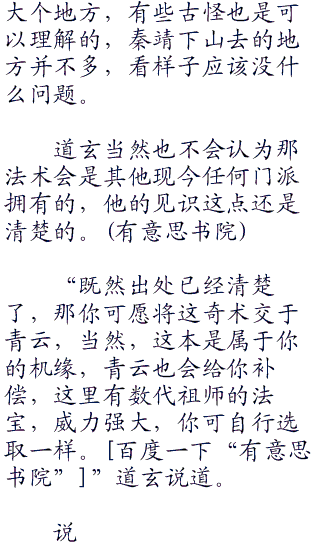 大个地方，有些古怪也是可
以理解的，秦靖下山去的地
方并不多，看样子应该没什
么问题。
道玄当然也不会认为那
法术会是其他现今任何门派
拥有的，他的见识这点还是
清楚的。(有意思书院)
“既然出处已经清楚
了，那你可愿将这奇术交于
青云，当然，这本是属于你
的机缘，青云也会给你补
偿，这里有数代祖师的法
宝，威力强大，你可自行选
取一样。[百度一下“有意思
书院”]”道玄说道。
说